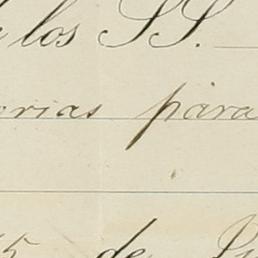 los SS.
rias para
15 de